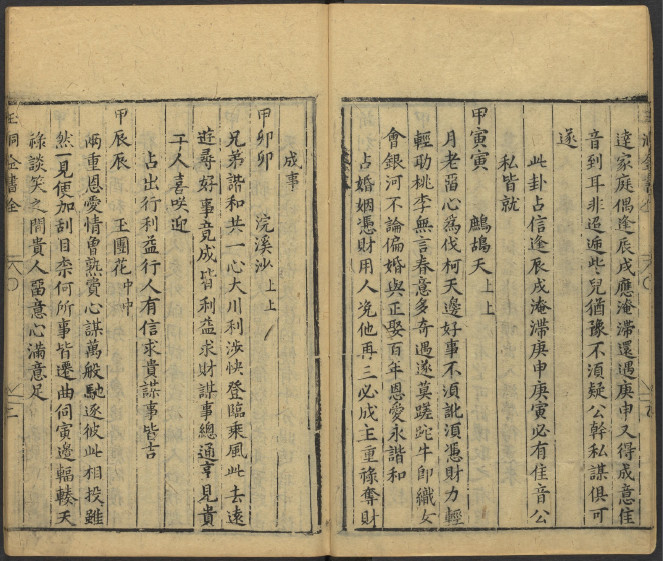 達家庭偶逢辰戌應淹滯還遇庚申又得成意佳
音到耳非迢遞些兒猶豫不須疑公幹私謀俱可
遂
此卦占信逢辰戌淹滯庚申庚寅必有佳音公
私皆就
甲寅寅 鷓鴣天上上
月老畱心為伐柯天邊好事不須訛須憑財力輕
輕助桃李無言春意多奇遇遂莫蹉跎牛郎織女
會銀河不論偏婚與正娶百年恩愛永諧和
占婚姻憑財用人完他再三必成主重祿奪財
成事
甲卯卯 浣溪沙上上
兄弟諧和共一心大川利涉快登臨乘風此去遠
遊尋好事竟成皆利益求財謀事總通亨見貴
人喜咲迎
占出行利益行人有信求貴謀事皆吉
甲辰辰 玉團花中中
兩重恩愛情曾熟賞心謀萬般馳逐彼此相投雖
然一見便加刮目柰何所事皆遷曲伺寅邊輻輳天
祿談笑之間貴人畱意心滿意足